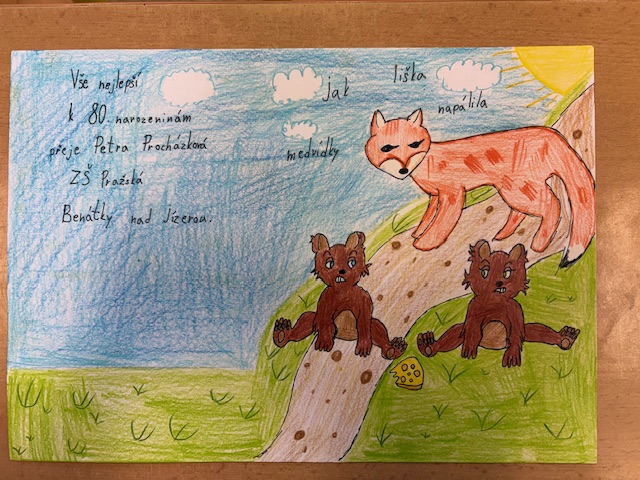 Vše nejlepší
k 80. narozeninám
přeje Petra Procházková
ZŠ Pražská
Benátky nad Jizerou.
jak liška napálila
medvídky